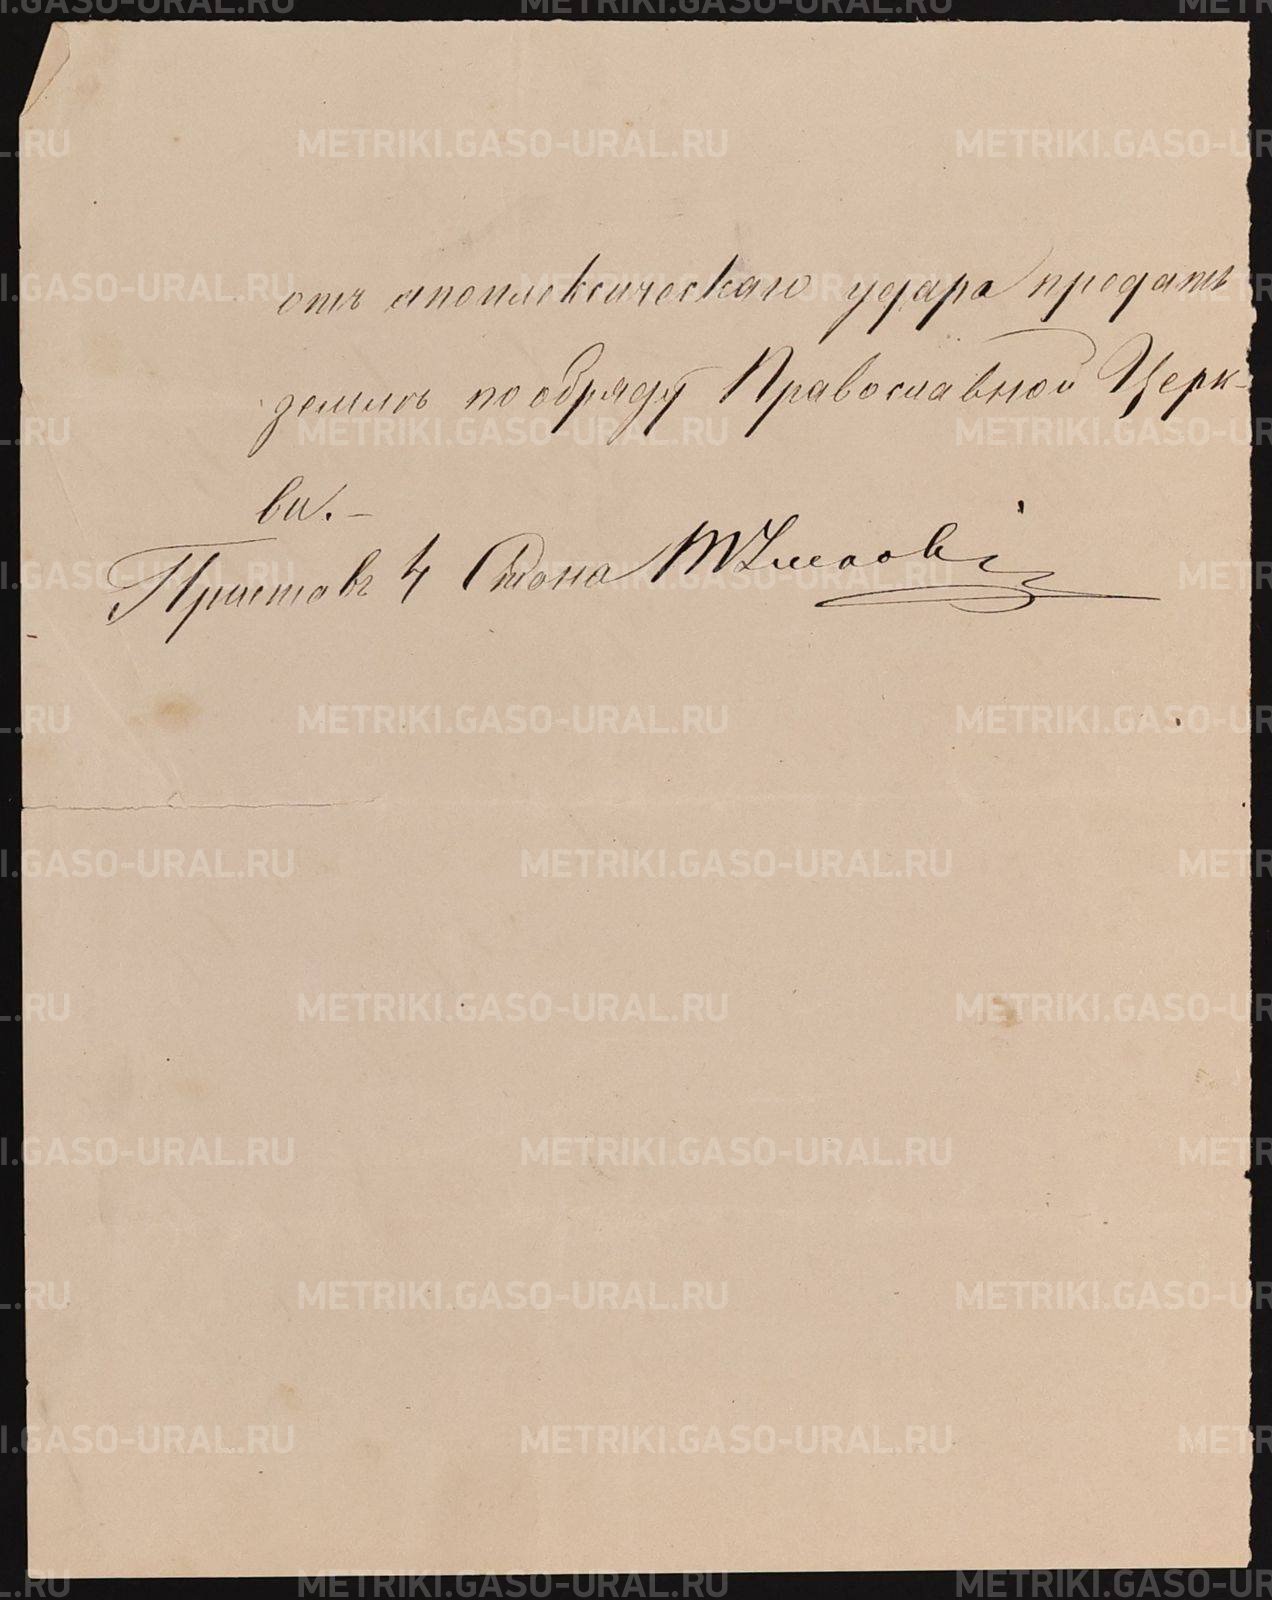 отъ апоплексическаго удара предать
землѣ по обряду Православной Церк-
ви. –
Приставъ 4 Стана
METRIKI.GASO-URAL.RU